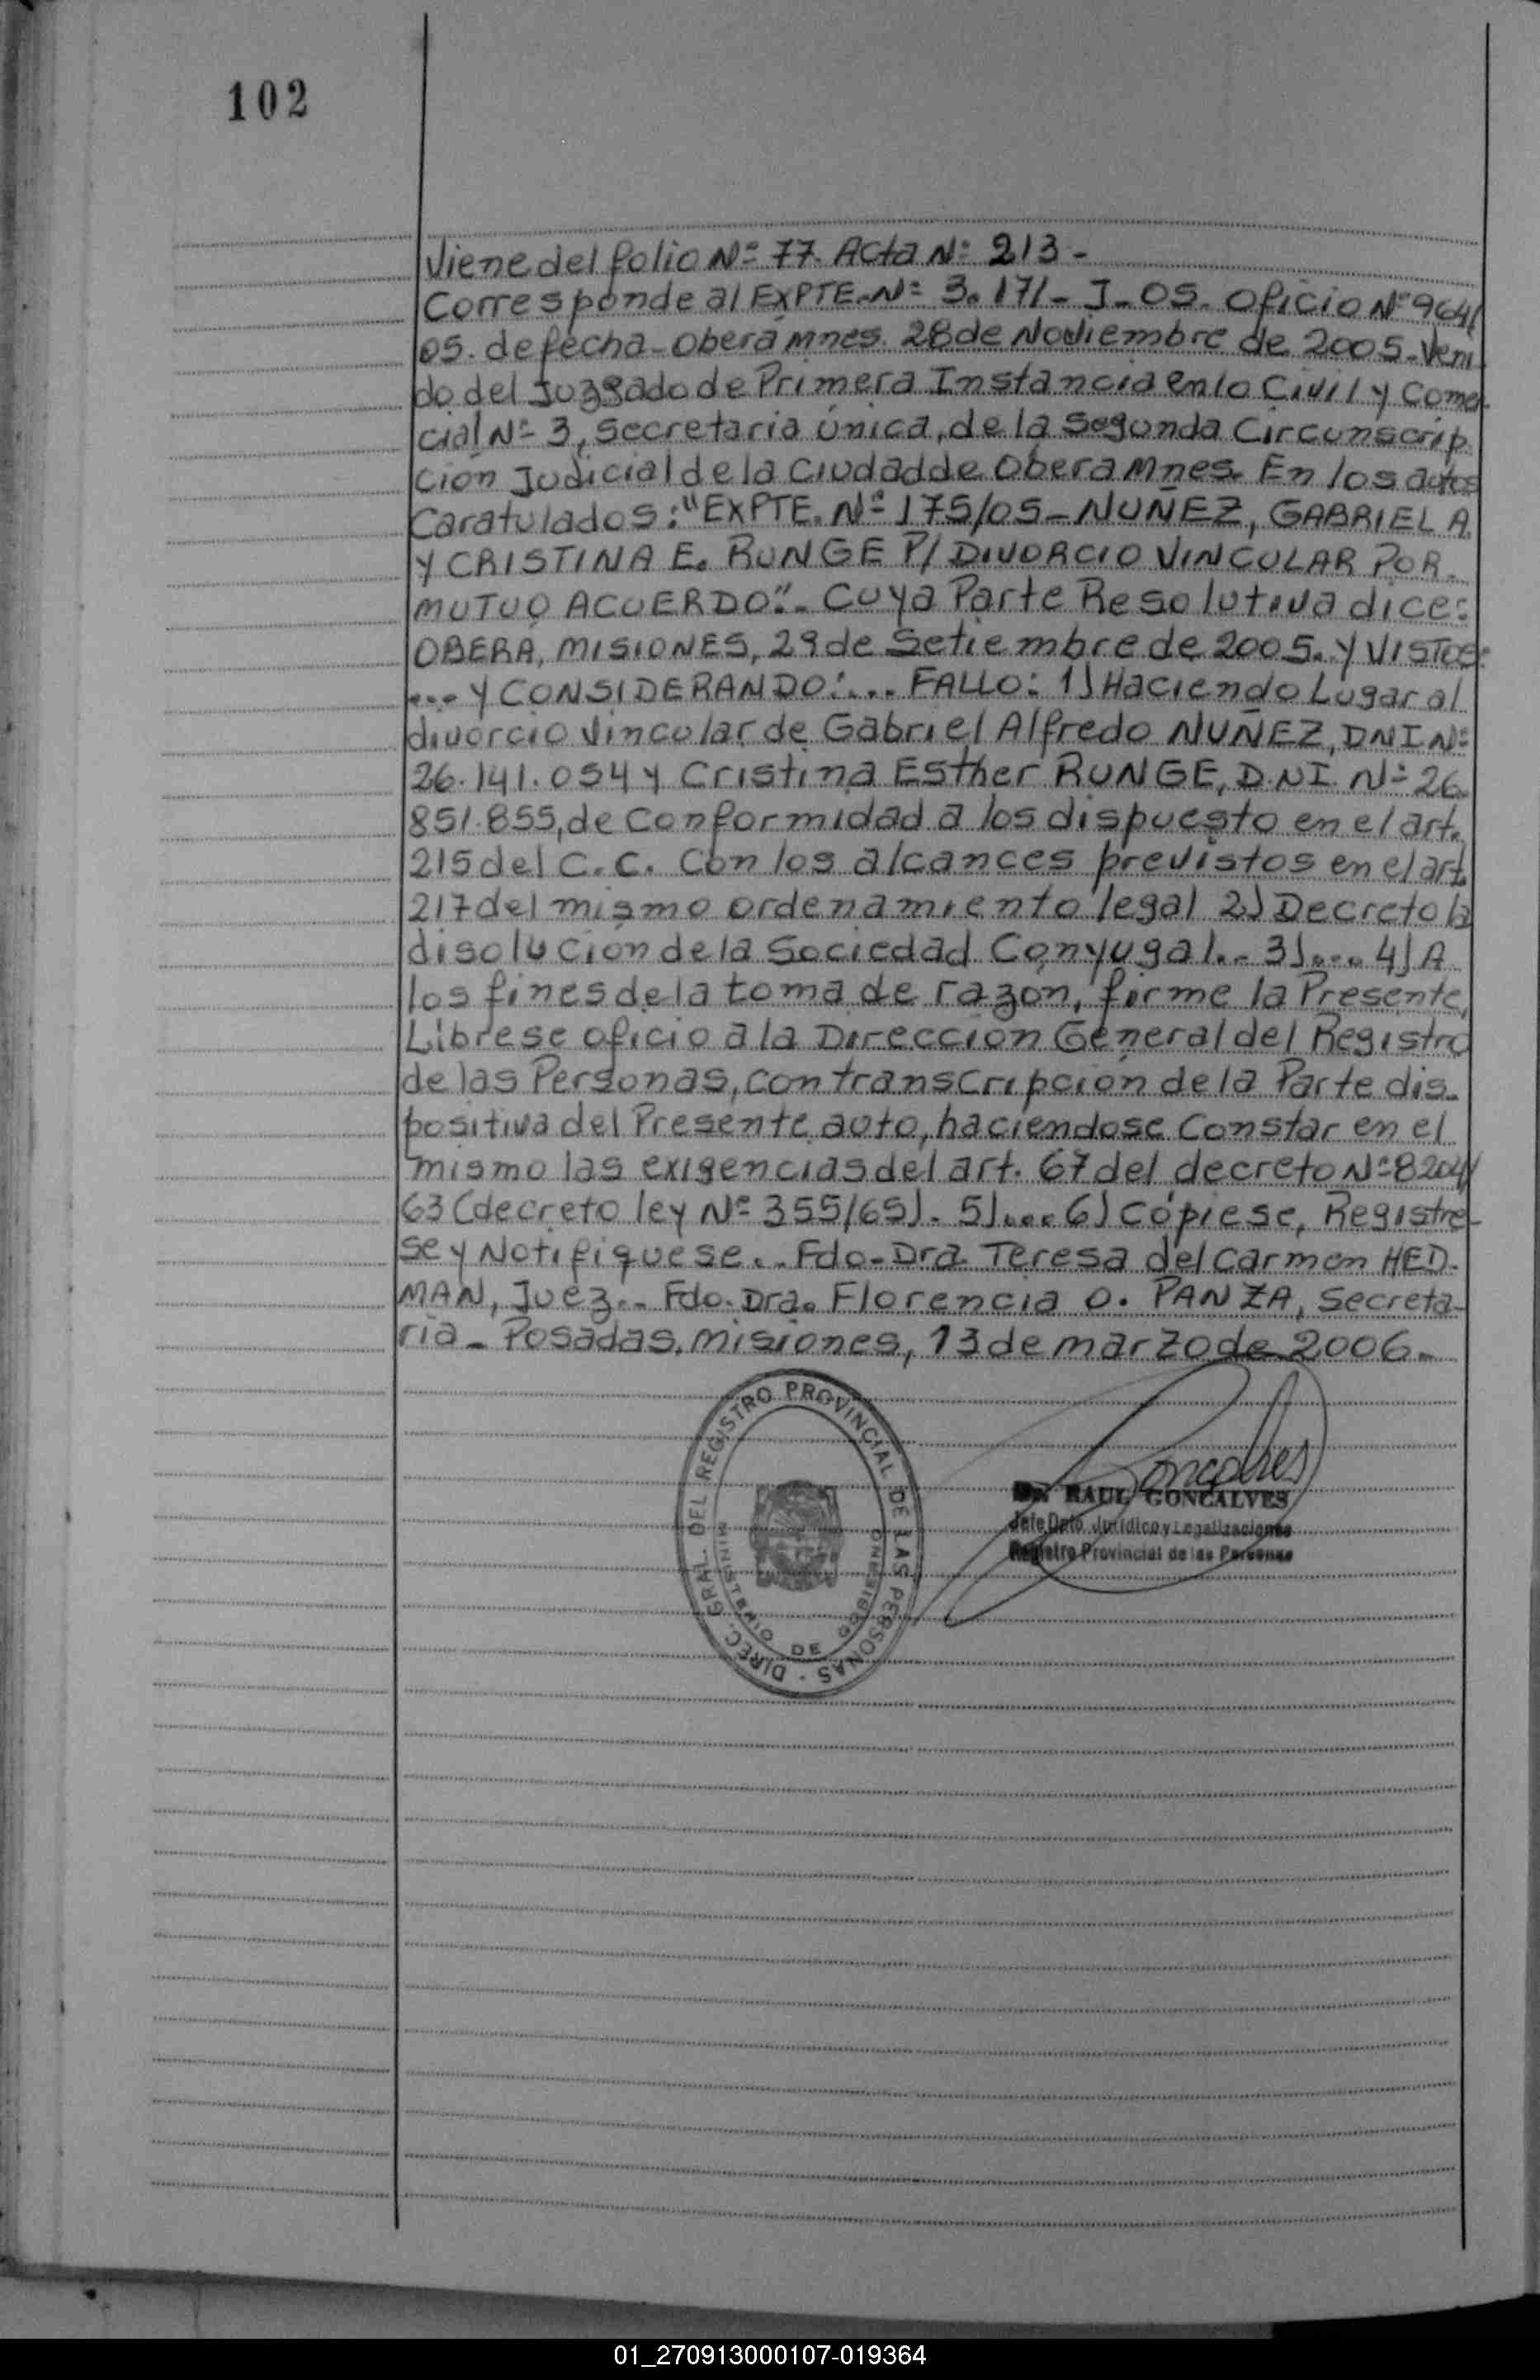 102
Viene del folio Nº 77. Acta Nº 213-
Corresponde al EXPTE. Nº 3.171-J-05. Oficio Nº 964/
05. de fecha-Oberá Mnes. 28 de Noviembre de 2005-Veni
do del Juzgado de Primera Instancia en lo Civil y Comer
cial Nº 3, Secretaria única, de la Segunda Circunscrip
cion Judicial de la Ciudad de Obera Mnes. En los autos
Caratulados: "EXPTE. Nº 175/05-NUÑEZ, GABRIEL A.
Y CRISTINA E. RUNGE P/ DIVORCIO VINCULAR POR
MUTUO ACUERDO".- Cuya Parte Resolutiva dice:
OBERÁ, MISIONES, 29 de Setiembre de 2005. Y VISTOS:
... Y CONSIDERANDO:... FALLO: 1) Haciendo Lugar al
divorcio Vincular de Gabriel Alfredo NUÑEZ, DNI Nº
26.141.054 y Cristina Esther RUNGE, D.NI. Nº 26.
851.855, de Conformidad a los dispuesto en el art.
215 del C.C. Con los alcances previstos en el art.
217 del mismo ordenamiento legal 2) Decreto la
disolución de la Sociedad Conyugal.- 3).... 4) A
los fines de la toma de razon, firme la Presente,
Líbrese oficio a la Dirección General del Registro
de las Personas, con transcripción de la Parte dis-
positiva del Presente auto, haciendose Constar en el
mismo las exigencias del art. 67 del decreto Nº 8204/
63 (decreto ley Nº 355/65). 5).... 6) Cópiese, Registre-
se y Notifiquese.- Fdo-Dra. Teresa del Carmen HED-
MAN, Juez.- Fdo. Dra. Florencia O. PANZA, Secreta-
ria- Posadas, Misiones, 13 de marzo de 2006-
DIREC. GRAL. DEL REGISTRO PROVINCIAL DE LAS PERSONAS -
MINISTERIO DE GOBIERNO
Goncalves
Dr. RAUL GONCALVES
Jefe Dpto. Jurídico y Legalizaciones
Registro Provincial de las Personas
01_270913000107-019364